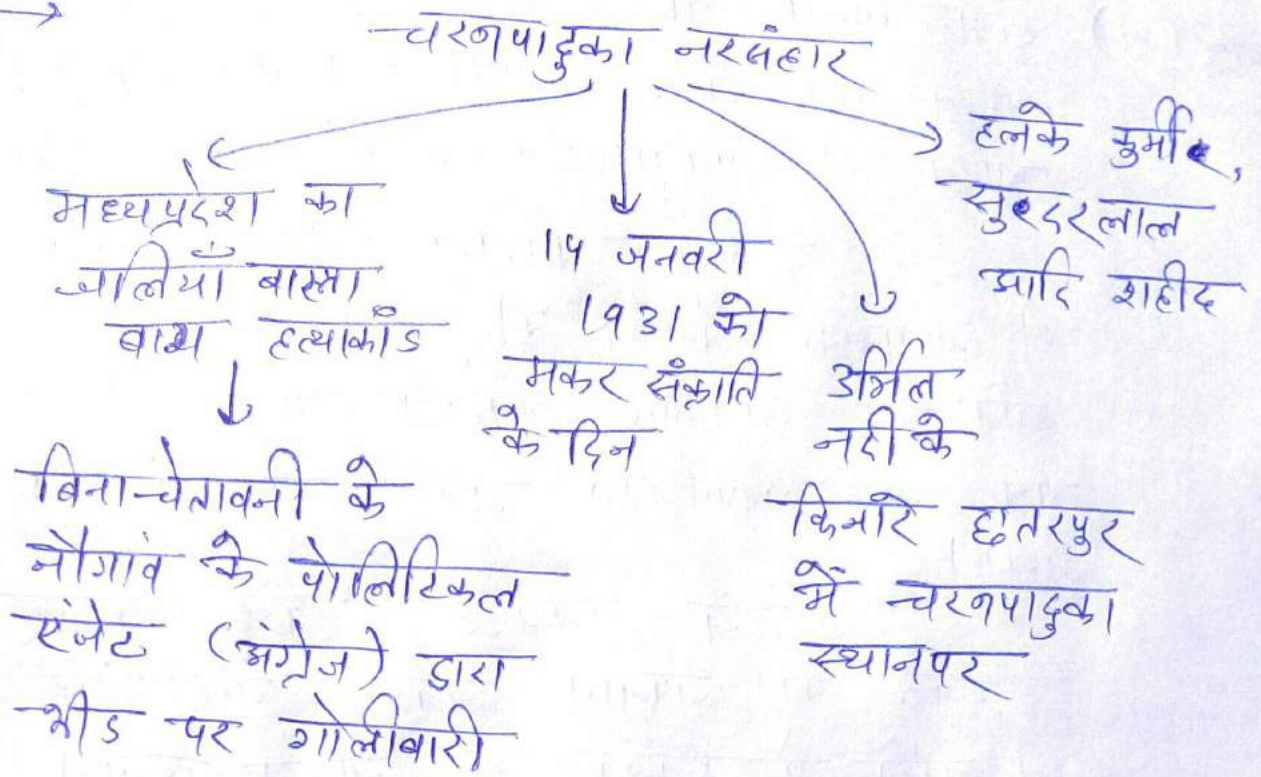 चरनपादुका नरसंहार
मध्यप्रदेश का
जालियाँ वाला
बाग हत्याकांड
बिना चेतावनी के
नौगांव के पोलिटिकल
एंजेट (अंग्रेज) द्वारा
भीड पर गोलीबारी
14 जनवरी
1931 को
मकर संक्राति
के दिन
उर्मिल
नदी के
किनारे छतरपुर
में चरनपादुका
स्थानपर
हलके कुर्मी,
सुन्दरलाल
आदि शहीद